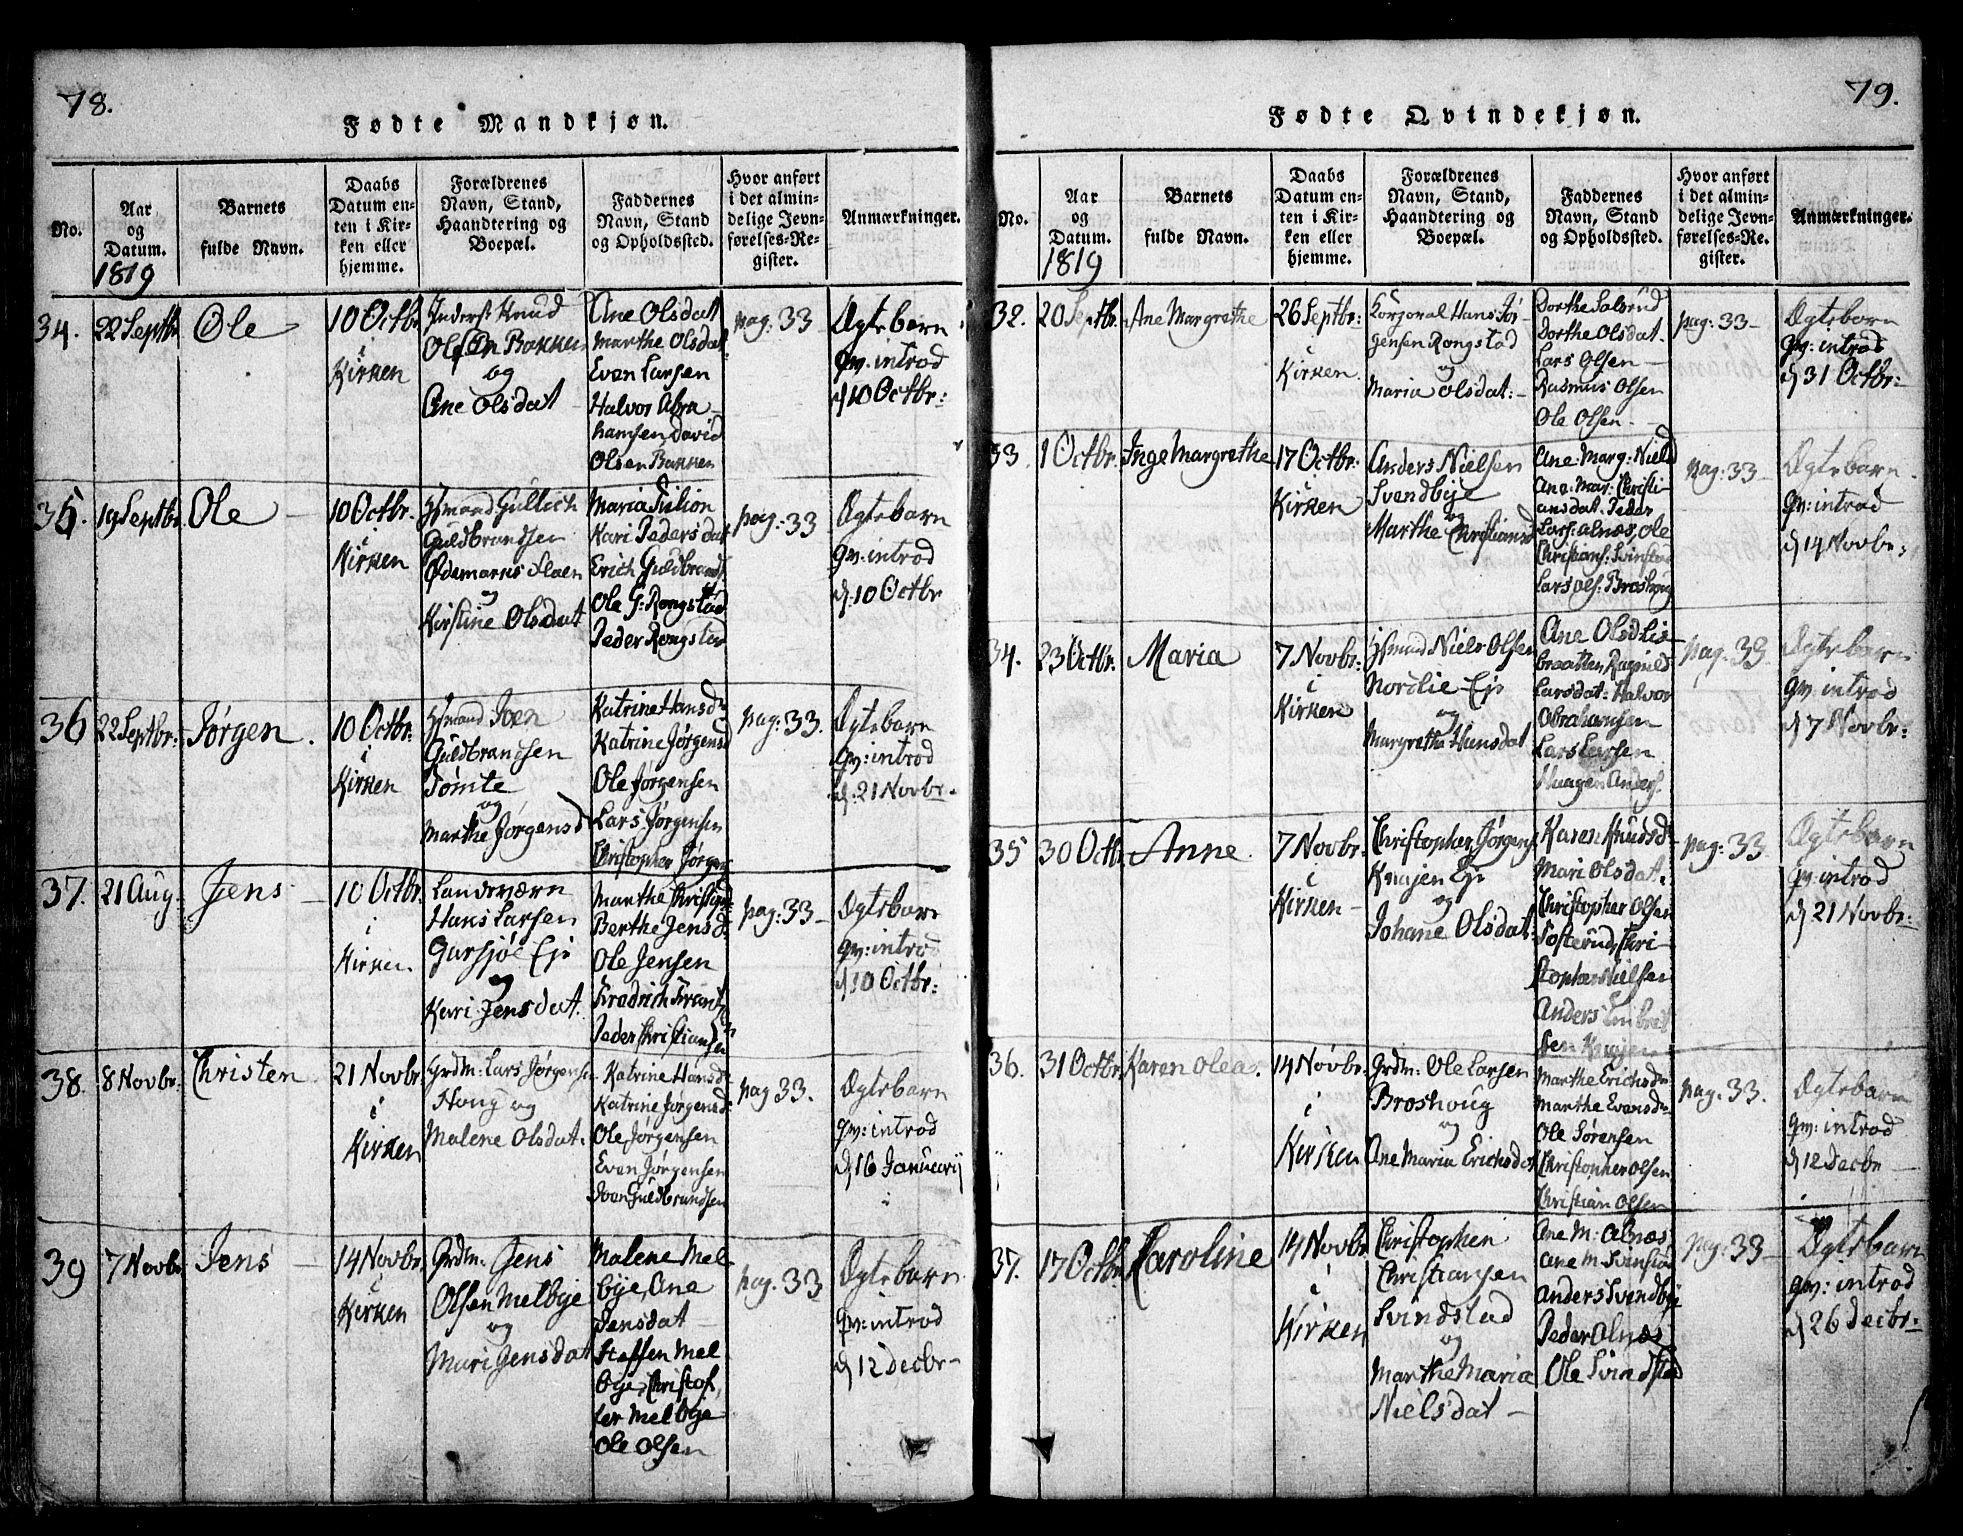 78.
Fødte Mandkjøn.
No.
Aar
og
Datum.
1819
Barnets
fulde Navn.
Daabs
Datum en-
ten i Kir-
ken eller
hjemme.
Forældrenes
Navn, Stand,
Haandtering og
Boepæl.
Faddernes
Navn, Stand
og Opholdssted.
Hvor anført
i det almin-
delige Jevn-
førelses-Re-
gister.
Anmærkninger.
34.
22 Septbr
Ole
10 Octbr
i
Kirken
Knud
Olsen Bakken
og
Ane Olsdat
Ane Olsdat
Marthe Olsdat
Even Larsen
Halvor Abra-
hamsen, David
Olsen Bakken
pag: 33
Ægtebarn
qv: introd
d. 10 Octbr:
35.
19 Septbr
Ole
10 Octbr.
i
Kirken
Huusmand Gullich
Guldbrandsen
Ødemarks
og
Kirstine Olsdat
Maria
Kari Pedersdat
Erich Guldbrands
Ole G: Rongstad
Peder Rongstad
pag: 33
Ægtebarn
qv: introd
d. 10 Octbr
36
22 Septbr:
Jørgen.
10 Octbr:
i
Kirken
Hsmand Joen
Guldbrandsen
Tømte
og
Marthe Jørgensd
Katrine Hansd
Katrine Jørgensd
Ole Jørgensen
Lars Jørgensen
Christopher Jørgens
pag: 33.
Ægtebarn
qv: introd
d. 21 Novbr.
37.
21 Aug
Jens
10 Octbr.
i
Kirken.
Landeværn
Hans Larsen
Gursjøe Eje
og
Kari Jensdat.
Marthe Christians
Berthe Jensd
Ole Jensen
Fredrich Frantz
Peder Christiansen
pag: 33
Ægtebarn
qv: introd
d. 10 Octbr:
38.
8 Novbr.
Christen
21 Novbr
i
Kirken
Grdm: Lars Jørgensen
Houg og
Malene Olsdat.
Katrine Hansd
Katrine Jørgensd
Ole Jørgensen
Even Jørgensen
Joen Guldbrandsen
pag 33.
Ægtebarn
qv: introd
d. 16 Januarij
39
7 Novbr
Jens
14 Novbr.
i
Kirken
Grdm: Jens
Olsen Melbye
og
Mari Jensdat
Malene Mel-
bye, Ane
Jensdat
Steffen Mel
bye, Christof
fer Melbye
Ole Olsen
pag: 33
Ægtebarn
qv: introd
d. 12 Decbr
79.
Fødte Qvindekjøn.
No.
Aar
og
Datum.
1819
Barnets
fulde Navn.
Daabs
Datum en-
ten i Kir-
ken eller
hjemme.
Forældrenes
Navn, Stand,
Haandtering og
Boepæl.
Faddernes
Navn, Stand
og Opholdssted.
Hvor anført
i det almin-
delige Jevn-
førelses-Re-
gister.
Anmærkninger.
32.
20 Septbr.
Ane Margrethe
26 Septbr:
i
Kirken.
Korporal Hans Jør-
gensen Rongstad
og
Maria Olsdat:
Dorthe
Dorthe Olsdat.
Lars Olsen
Rasmus Olsen
Ole Olsen
pag: 33
Ægtebarn
qv: introd
d. 31 Octbr:
33.
1 Octbr.
Inge Margrethe
17 Octbr.
Kirken
Anders Nielsen
Svendbye
og
Marthe Christiansd
Ane: Marg: Nield
Ane: Mar: Christi-
ansdat. Peder
Lars: Alnæs, Ole
Christians: Svinstad
Lars Ols: Broshoug
pag: 33
Ægtebarn.
qv: introd
d. 14 Novbr:
34.
23 Octbr.
Maria
7 Novbr:
i
Kirken
Hsmand Niels Olsen
Nordlie Eje
og
Margrethe Hansdat
Ane Olsd Lis-
braatten, Ragnild
Larsdat: Halvor
Abrahamsen
Lars Larsen
Haagen Anders.
pag: 33
Ægtebarn
qv: introd
d. 7 Novbr:
35
30 Octb.
Anne.
7 Novbr:
i
Kirken
Christopher Jørgens
Knajen Eje
og
Johane Olsdat:
Karen Knudsd
Mari Olsdat.
Christopher Olsen
Tosterud, Chri-
stopher Nielsen
Anders Embret
sen Knajen
pag: 33
Ægtebarn
qv: introd
d. 21 Novbr:
36.
31 Octbr
Karen Olea.
14 Novbr.
i
Kirken
Grdm: Ole Larsen
Broshoug
og
Ane Maria Erichsdat
Marthe Erichsd
Marthe Evensd
Ole Sørensen
Christopher Olsen
Christian Olsen
pag: 33.
Ægtebarn
qv: introd
d. 12 Decbr
37.
17 Octbr
Karoline
14 Novbr
i
Kirken
Christopher
Christiansen
Svindstad
og
Marthe Maria
Nielsdat
Ane M. Alnæs
Ane M. Svinstad
Anders Svendbye
Peder Alnæs
Ole Svindstad
pag: 33
Ægtebarn
qv: introd
d. 26 Decbr: